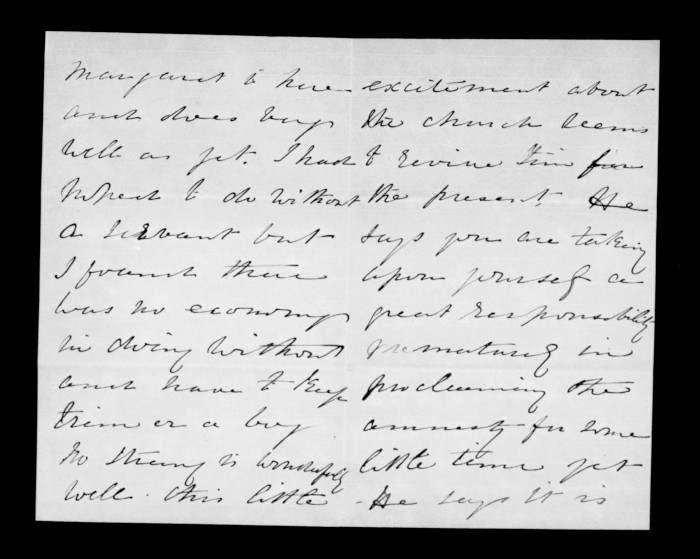 Margaret is here
and does very
well as yet. I had
hoped to do without
a servant but
I found there
was no economy
in doing without
and have to keep
him or a boy
so strong is wonderfully
well. this little
excitement about
the church seems
to revive him for
the present. He
says you are taking
upon yourself a
great responsibility
prematurely in
proclaiming the
amnesty for some
little time yet
He says it is